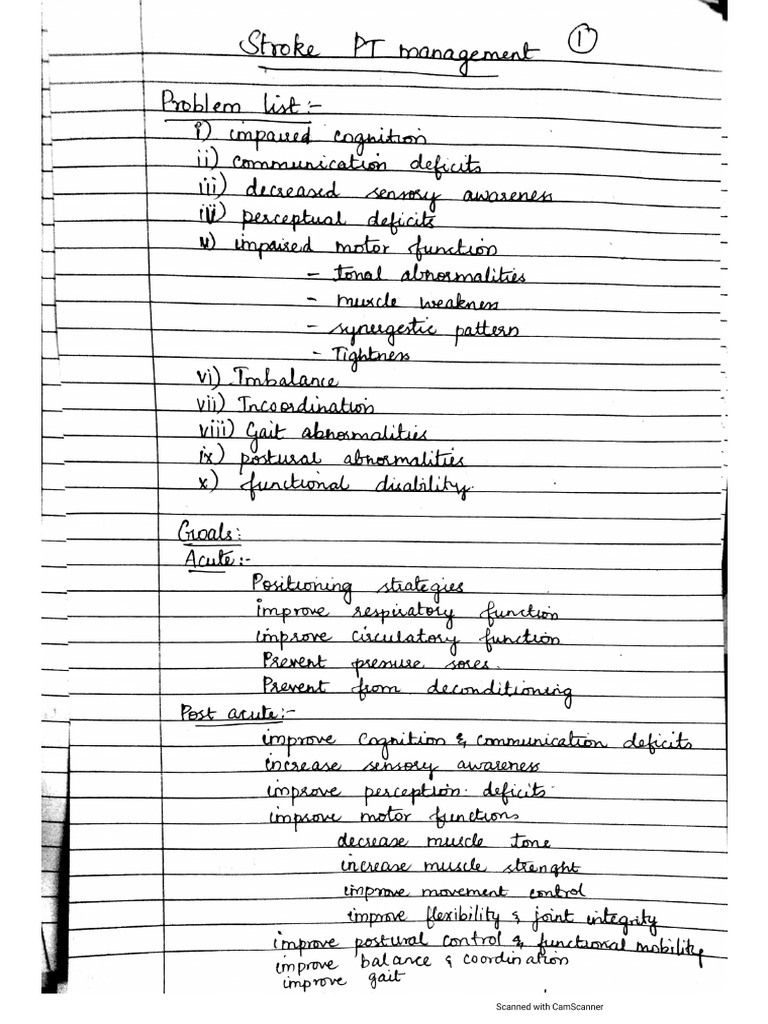 Stroke PT management 1
Problem list:-
i) impaired cognition
ii) communication deficits
iii) decreased sensory awareness
iv) perceptual deficits
v) impaired motor function
- tonal abnormalities
- muscle weakness
- synergestic pattern
- Tightness
vi) Imbalance
vii) Incoordination
viii) Gait abnormalities
ix) postural abnormalities
x) functional disability.
Goals:
Acute:-
Positioning strategies
improve respiratory function
improve circulatory function
Prevent pressure sores.
Prevent from deconditioning
Post acute:-
improve Cognition & communication deficits
increase sensory awareness
improve perception deficits
improve motor functions
decrease muscle tone
increase muscle strenght
improve movement control
improve flexibility & joint integrity
improve postural control & functional mobility
improve balance & coordination
improve gait
Scanned with CamScanner